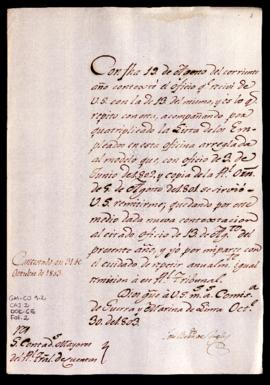 Con fha 13 de Agosto del corriente
año contexté el oficio qe recivi de
V.S. con la de 13 del mismo, y es lo qe
repito con este, acompañando por
quatriplicado la Lista de los Em-
pleados en esta oficina arreglada
al modelo que, con oficio de 3 de
Junio de 1802 y copia de la Rl. Orn
de 5 de Agosto de 1801 se sirvió
V.S. remitirme; quedando por este
medio dada nueva contextacion
al citado oficio de 13 de Agto del
presente año, y yo por mi parte con
el cuidado de repetir anualmte igual
remision à ese Rl. Tribunal.
Dios gue à V.S. m. a. Comisa
de Guerra y Marina de Piura Octe
30 de 1803.
Contextado en 31 de
Octubre de 1803.
GM-CO 92
CAJ 2
DOC 68
Fol. 2
S. Contadr Mayores
del Rl. Tral. de Cuentas